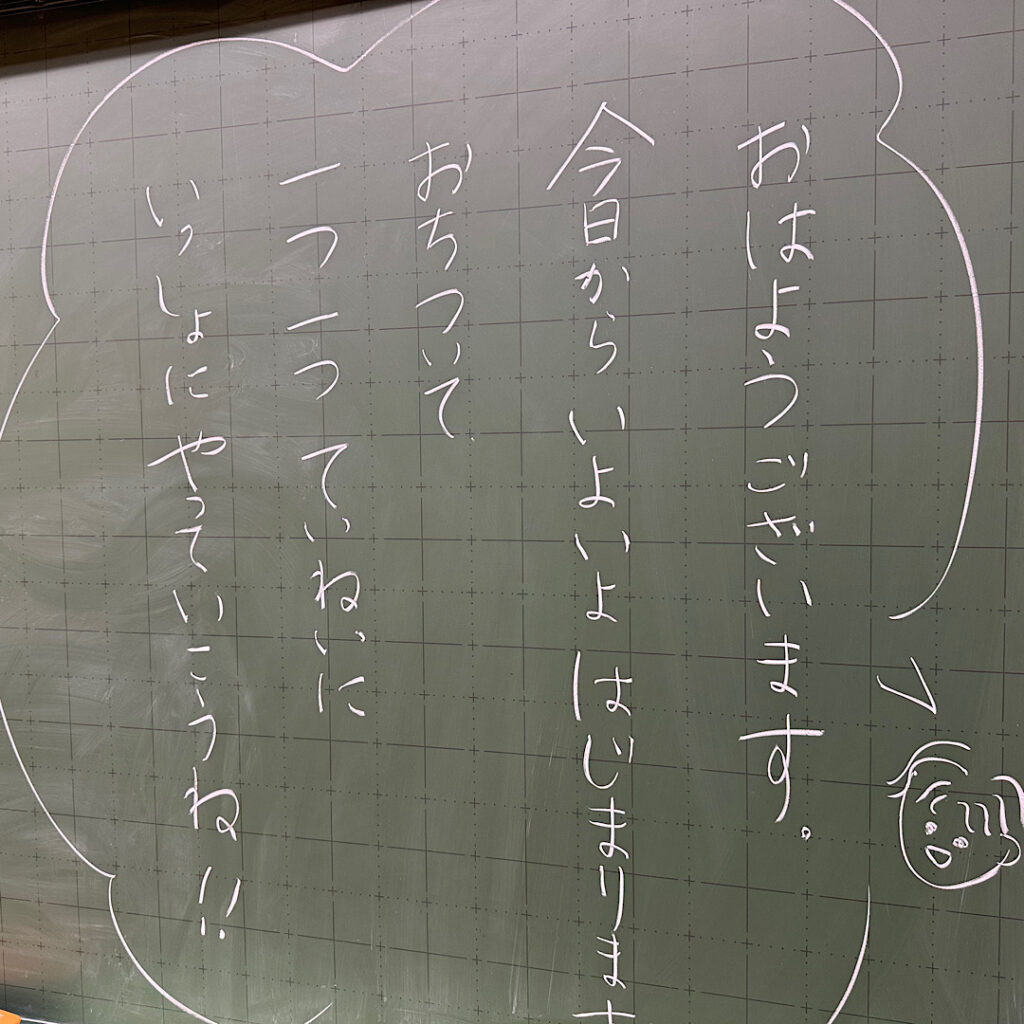 おはようございます。
今日からいよいよはじまりま
おちついて
一つ一つていねいに
いっしょにやっていこうね!!